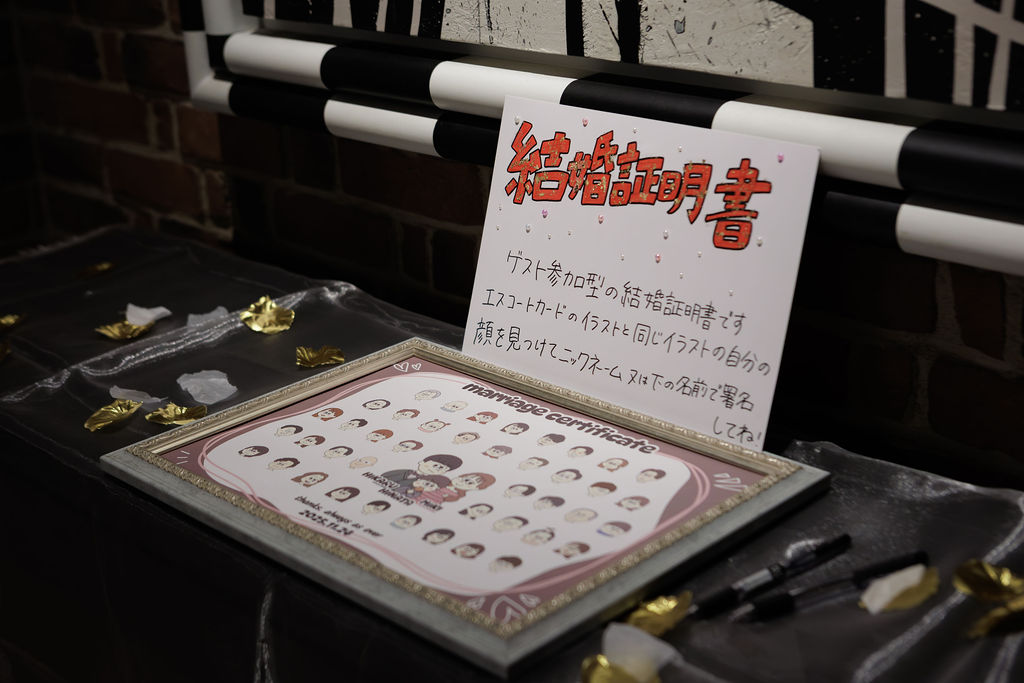 結婚証明書
ゲスト参加型の結婚証明書です
エスコートカードのイラストと同じイラストの自分の
顔を見つけてニックネーム又は下の名前で署名
してね!
marriage certificate
thanks, always as ever
2025.11.24